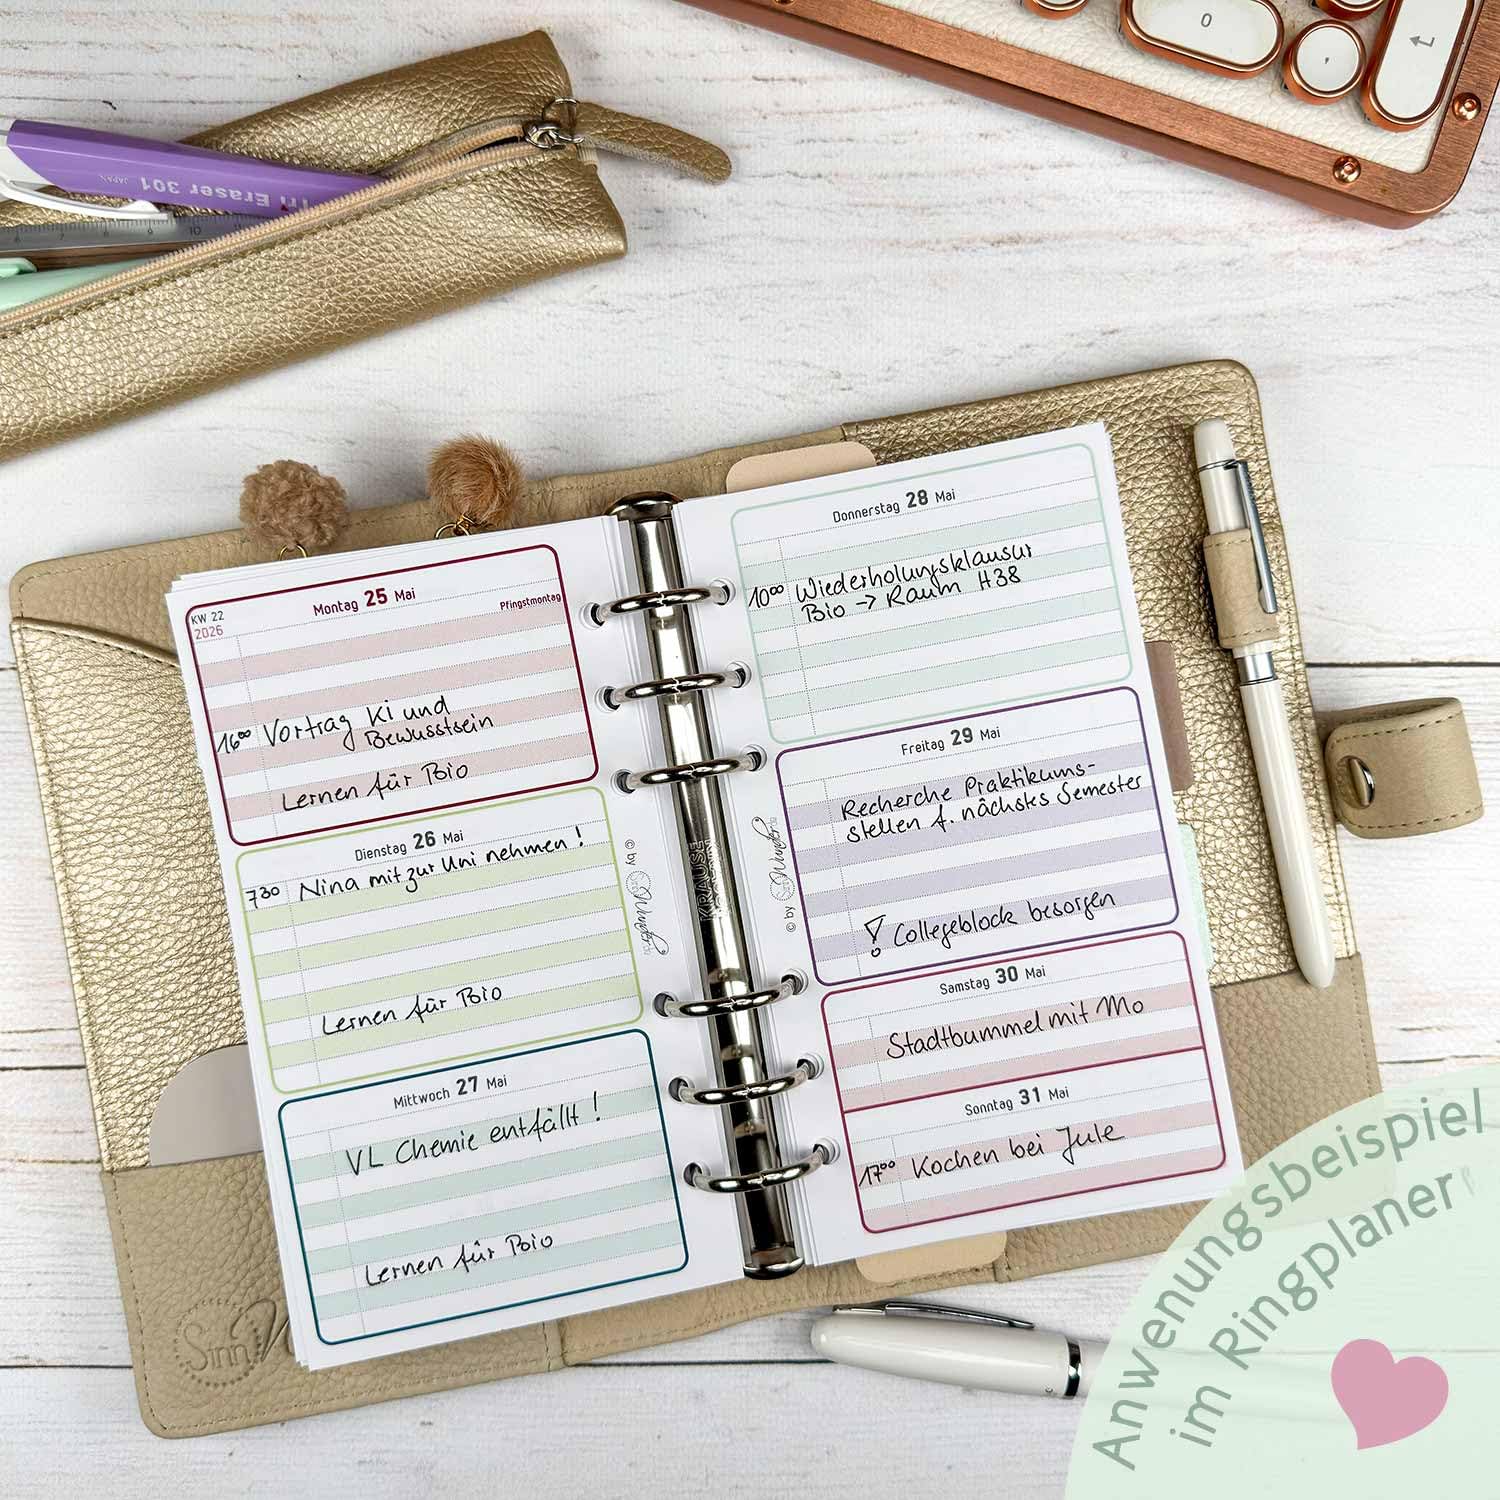 0
,
Tri Eraser 301
JAPAN
6 7 8 9 10
KW 22
2026
Montag 25 Mai
Pfingstmontag
16⁰⁰ Vortrag Ki und
Bewusstsein
Lernen für Bio
Dienstag 26 Mai
7³⁰ Nina mit zur Uni nehmen!
Lernen für Bio
Mittwoch 27 Mai
VL Chemie entfällt!
Lernen für Bio
© by SinnWunder.de
KRAUSE
Donnerstag 28 Mai
10⁰⁰ Wiederholungsklausur
Bio → Raum H38
Freitag 29 Mai
Recherche Praktikums-
stellen f. nächstes Semester
! Collegeblock besorgen
© by SinnWunder.de
Samstag 30 Mai
Stadtbummel mit Mo
Sonntag 31 Mai
17⁰⁰ Kochen bei Jule
Sinn
Anwenungsbeispiel
im Ringplaner